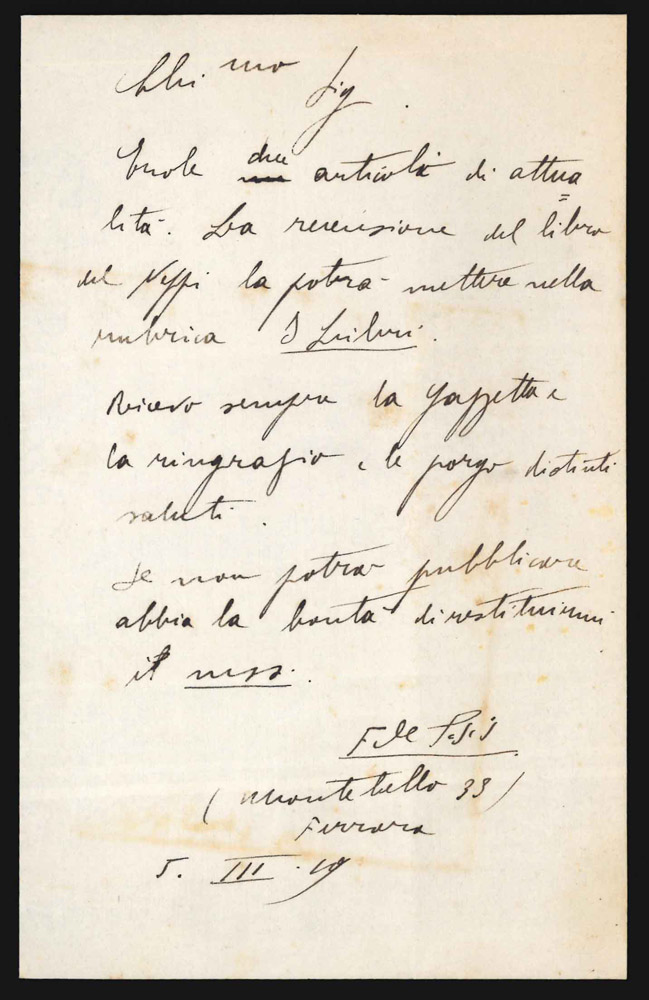 Chi mo Sig.
Eccole due articoli di attua
lità. La recensione del libro
del Neppi la potrà mettere nella
rubrica I Libri.
Ricevo sempre la Gazzetta e
la ringrazio e le porgo distinti
saluti.
Se non potrà pubblicare
abbia la bontà di restituirmi
il mss.
F. de Pisis
(Montebello 33)
Ferrara
5. III. 19